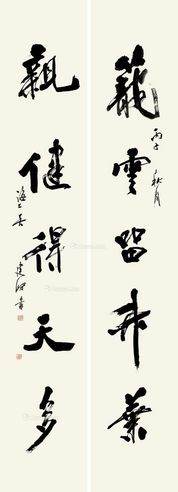 籠雲留葉
丙子秋月
親健得天多
海上吳建賢書